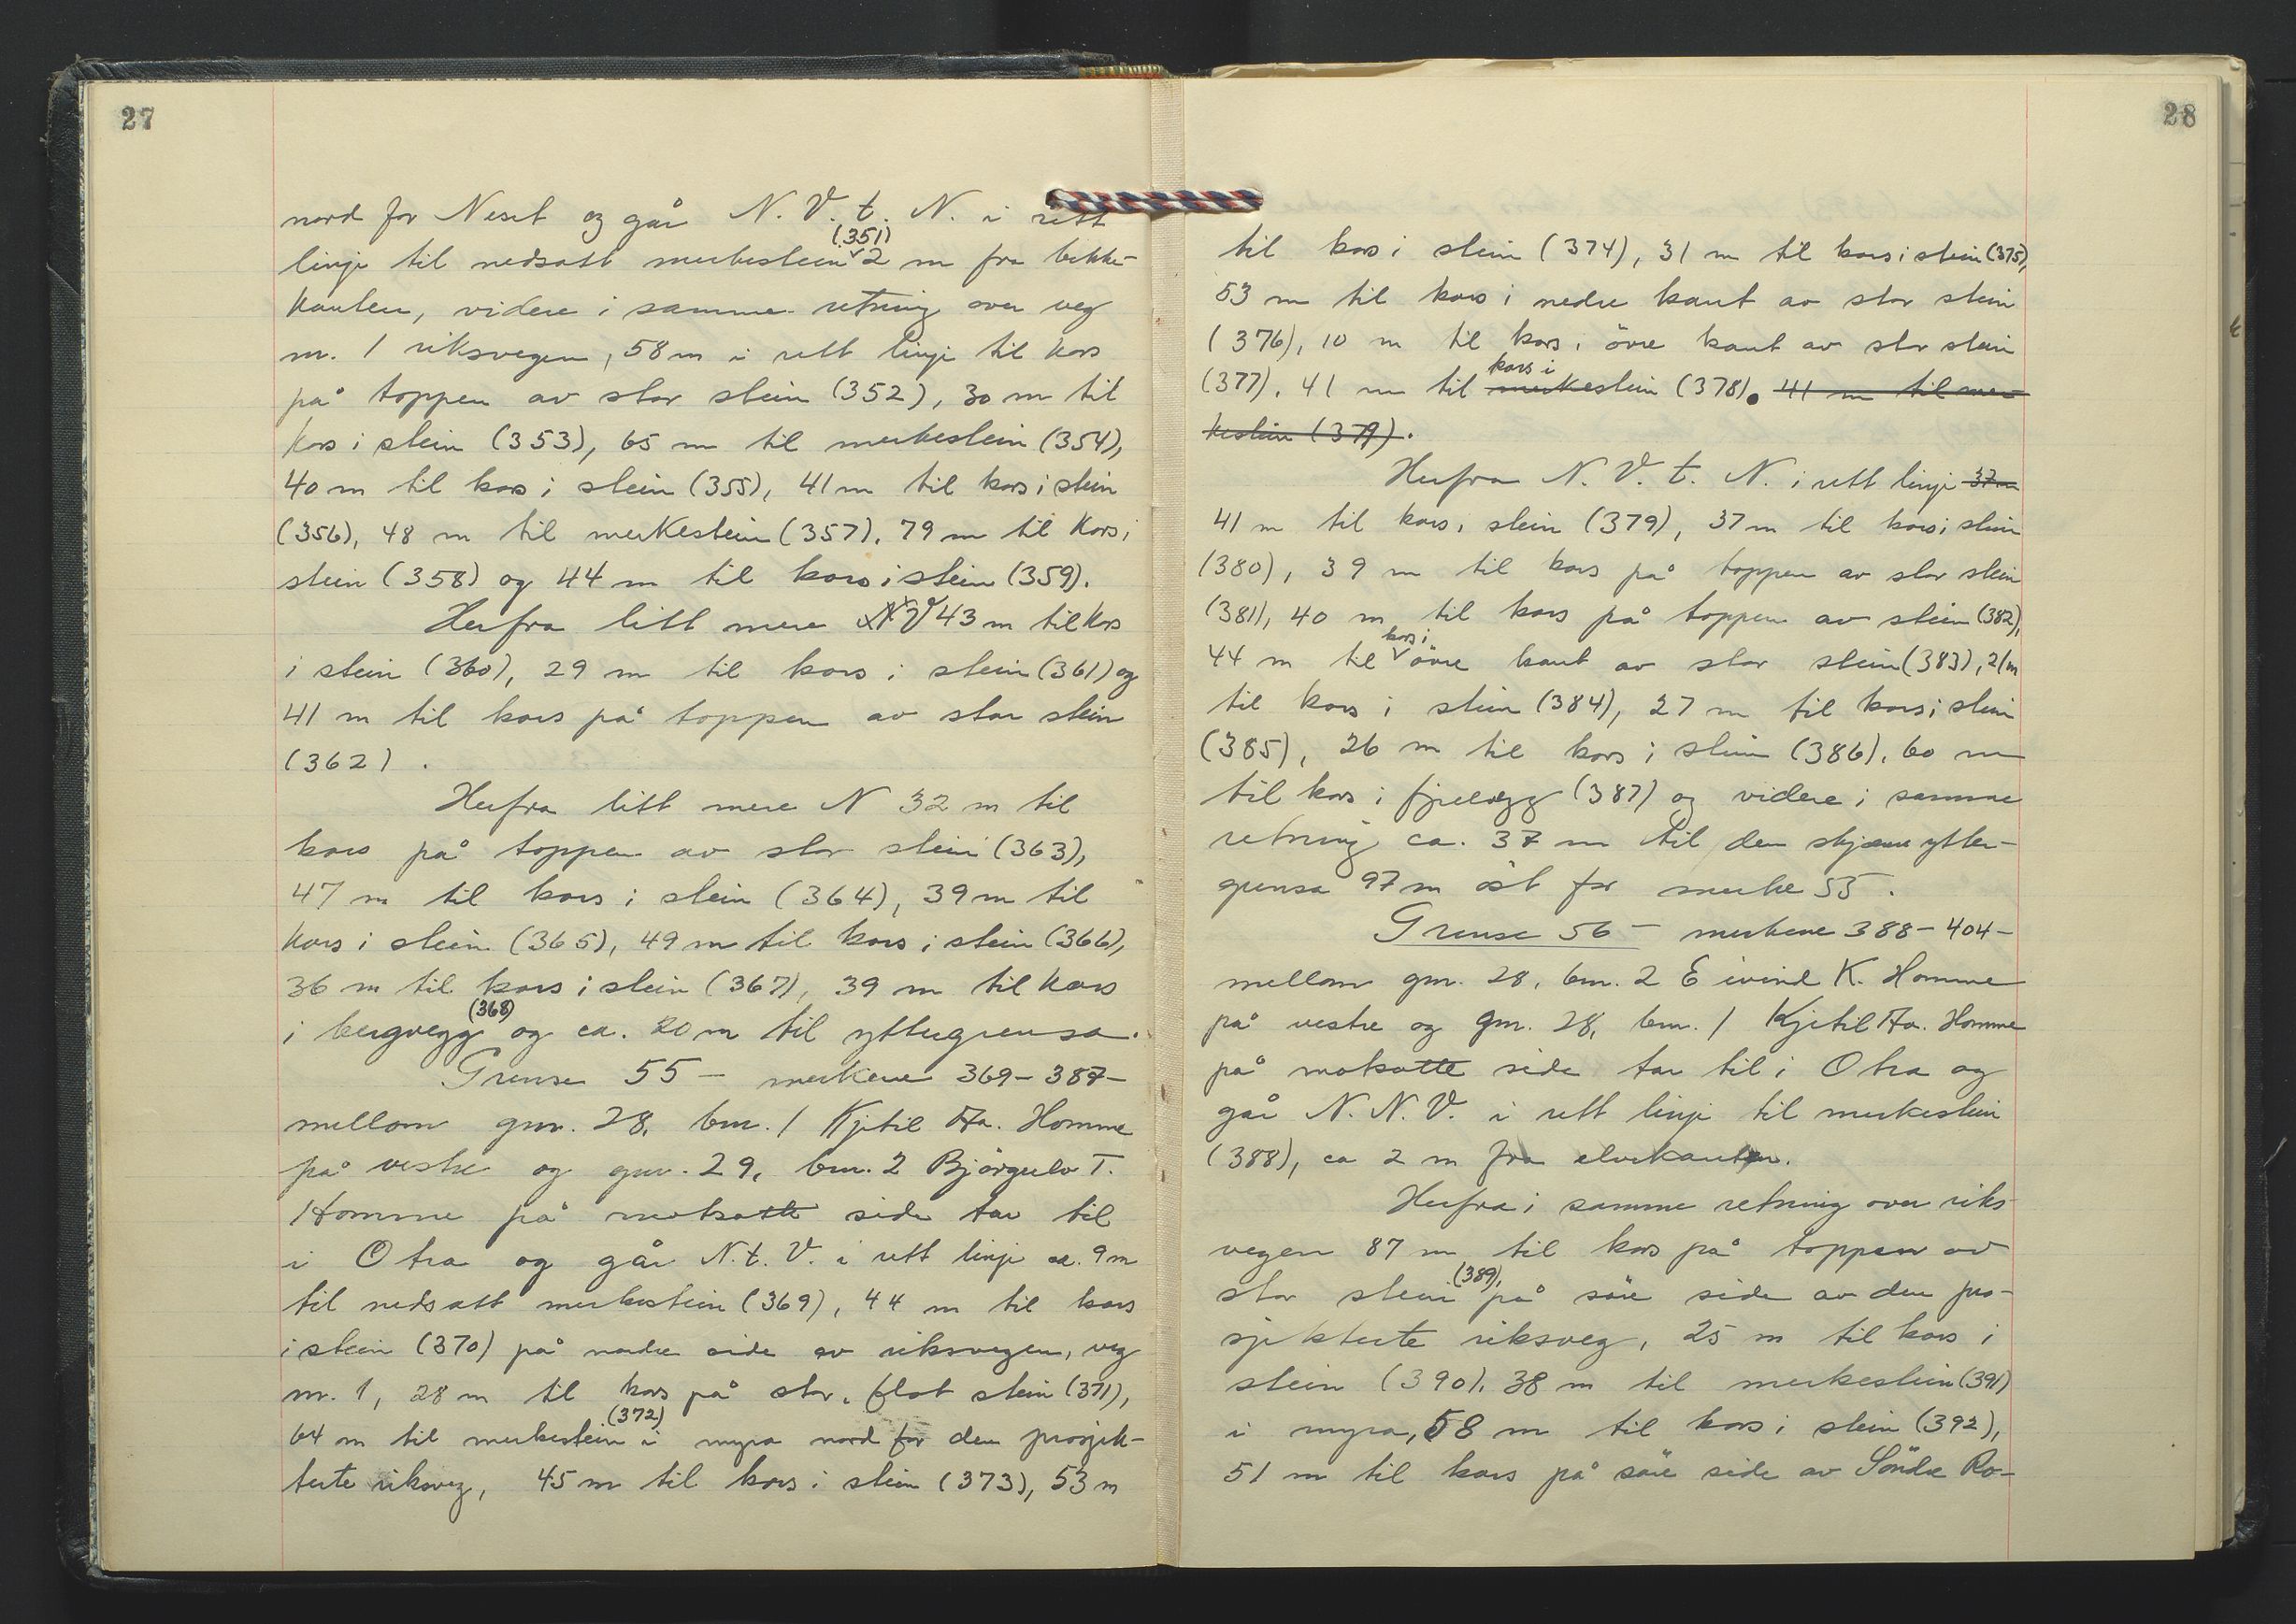 27
nord for Neset og går N. V. t. N. i rett
linje til nedsatt merkestein (351) 2 m fra bekke-
kanten, videre i samme retning over veg
nr. 1 riksvegen, 58 m i rett linje til kors
på toppen av stor stein (352), 30 m til
kors i stein (353), 65 m til merkestein (354),
40 m til kors i stein (355), 41 m til kors i stein
(356), 48 m til merkestein (357), 79 m til kors i
stein (358) og 44 m til kors i stein (359).
Herfra litt mere V 43 m til kors
i stein (360), 29 m til kors i stein (361) og
41 m til kors på toppen av stor stein
(362).
Herfra litt mere N 32 m til
kors på toppen av stor stein (363),
47 m til kors i stein (364), 39 m til
kors i stein (365), 49 m til kors i stein (366),
36 m til kors i stein (367), 39 m til kors
i bergvegg (368) og ca. 20 m til yttergrensa.
Grense 55 - merkene 369 - 387 -
mellom gnr. 28, bnr. 1 Kjetil Aa. Homme
på vestre og gnr. 29, bnr. 2 Bjørgulv T.
Homme på motsatte side tar til
i Otra og går N. t. V. i rett linje ca. 9 m
til nedsatt merkestein (369), 44 m til kors
i stein (370) på nordre side av riksvegen, veg
nr. 1, 28 m til kors på stor, flat stein (371),
64 m til merkestein (372) i myra nord for den prosjek-
terte riksveg, 45 m til kors i stein (373), 53 m
28
til kors i stein (374), 31 m til kors i stein (375),
53 m til kors i nedre kant av stor stein
(376), 10 m til kors i övre kant av stor stein
(377), 41 m til kors i merkestein (378). 41 m til mer-
kestein (379).
Herfra N. V. t. N. i rett linje 37 m
41 m til kors i stein (379), 37 m til kors i stein
(380), 39 m til kors på toppen av stor stein
(381), 40 m til kors på toppen av stein (382),
44 m til kors i övre kant av stor stein (383), 21 m
til kors i stein (384), 27 m til kors i stein
(385), 26 m til kors i stein (386), 60 m
til kors i fjellvegg (387) og videre i samme
retning ca. 37 m til den skjærer ytter-
grensa 97 m öst for merke 55.
Grense 56 - merkene 388 - 404 -
mellom gnr. 28, bnr. 2 Eivind K. Homme
på vestre og gnr. 28, bnr. 1 Kjetil Aa. Homme
på motsatte side tar til i Otra og
går N. N. V. i rett linje til merkestein
(388), ca 2 m fra elvekanten.
Herfra i samme retning over riks-
vegen 87 m til kors på toppen av
stor stein (389), på söre side av den pro-
sjekterte riksveg, 25 m til kors i
stein (390), 38 m til merkestein (391)
i myra, 58 m til kors i stein (392),
51 m til kors på söre side av Söndre Ro-